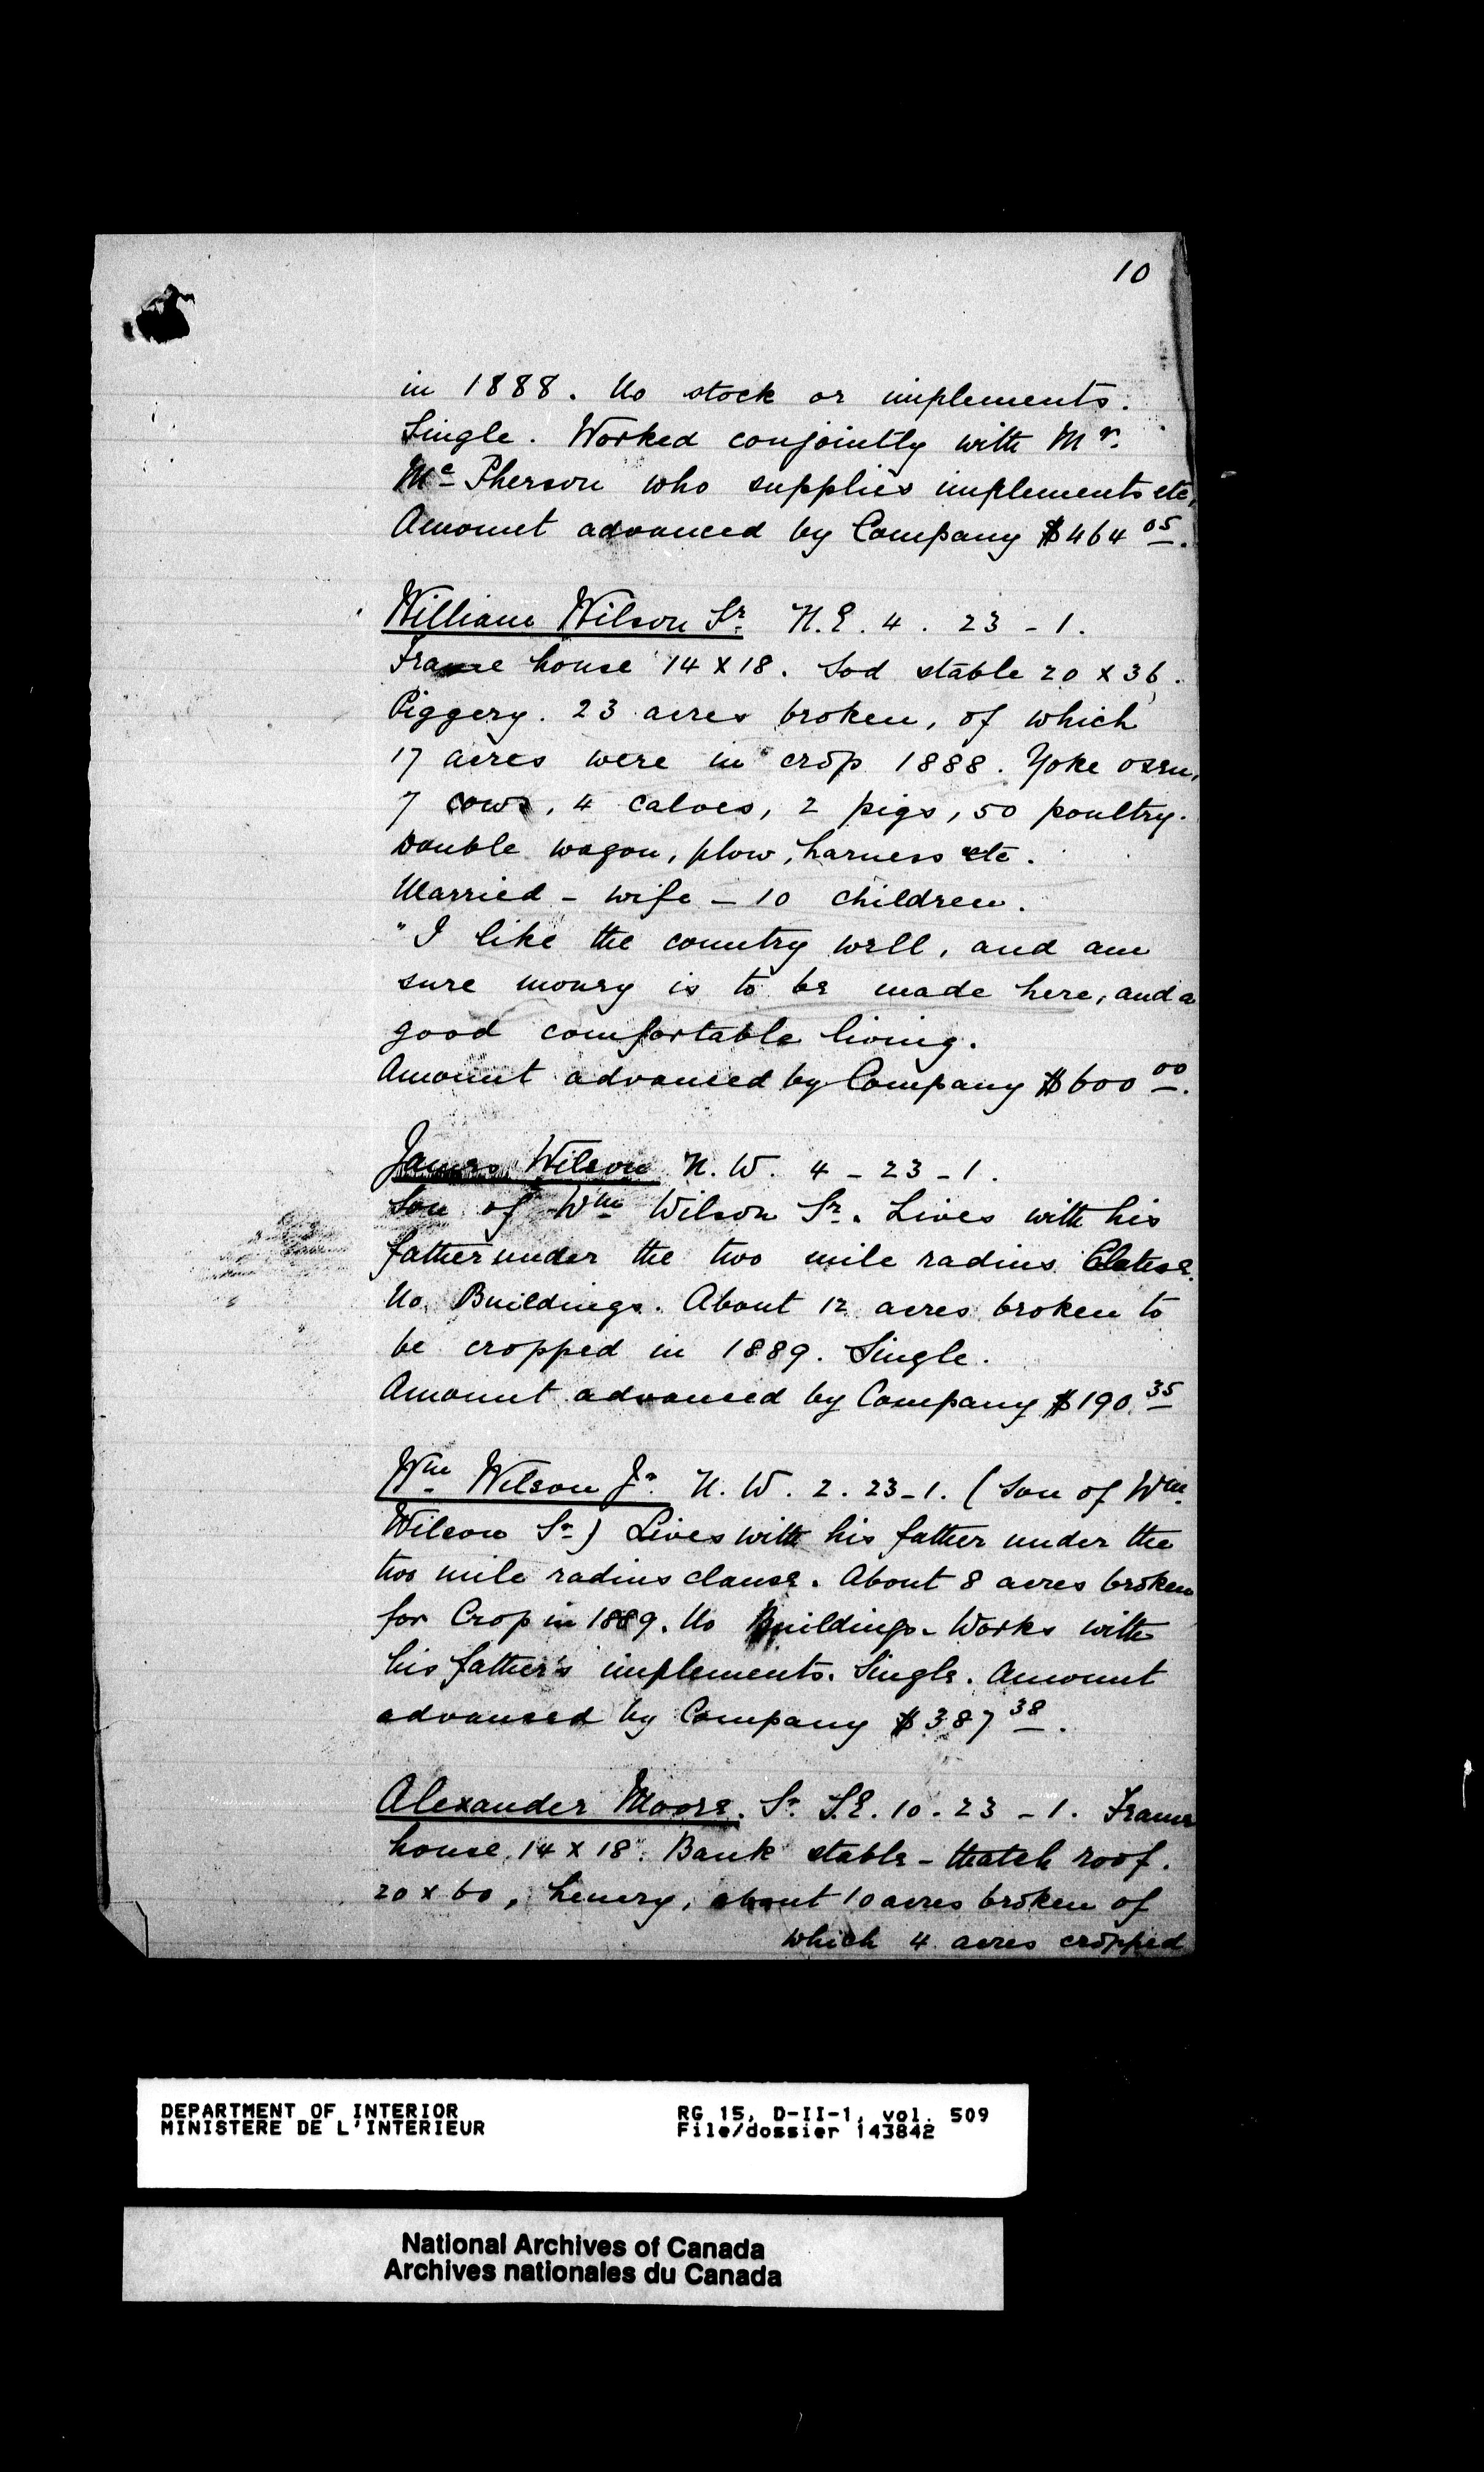 10
in 1888. No stock or implements.
Single. Worked conjointly with Mr.
Mc Pherson who supplies implements etc,
Amount advanced by Company $464 05.
William Wilson Sr. N.E. 4. 23 - 1.
Frame house 14 x 18. Sod stable 20 x 36.
Piggery. 23 acres broken, of which
17 acres were in crop 1888. Yoke oxen,
7 cows, 4 calves, 2 pigs, 50 poultry.
Double wagon, plow, harness etc.
Married - wife - 10 children.
"I like the country well, and am
sure money is to be made here, and a
good comfortable living.
Amount advanced by Company $600 00.
James Wilson N. W. 4 - 23 - 1.
Son of Wm Wilson Sr. Lives with his
father under the two mile radius Clause.
No Buildings. About 12 acres broken to
be cropped in 1889. Single.
Amount advanced by Company $190 35
Wm Wilson Jr. N. W. 2. 23 - 1. (Son of Wm
Wilson Sr) Lives with his father under the
two mile radius clause. About 8 acres broken
for Crop in 1889. No Buildings - Works with
his father's implements. Single. Amount
advanced by Company $387 38.
Alexander Moore. Sr. S.E. 10 - 23 - 1. Frame
house 14 x 18. Bank stable - thatch roof.
20 x 60, henery, about 10 acres broken of
which 4 acres cropped
DEPARTMENT OF INTERIOR
MINISTERE DE L'INTERIEUR
RG 15, D-II-1, vol. 509
File/dossier 143842
National Archives of Canada
Archives nationales du Canada